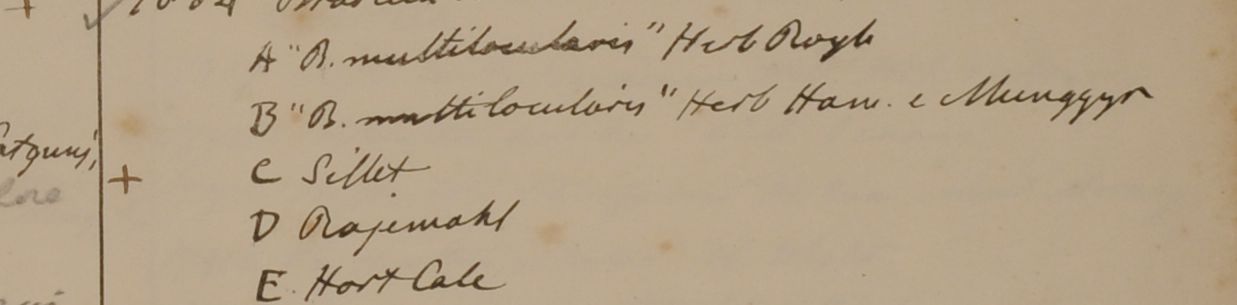 A "B. multilocularis" Herb Royle
B "B. multilocularis" Herb Ham. e Munggyr
C Sillet
+
D Rajemahl
E Hort Calc